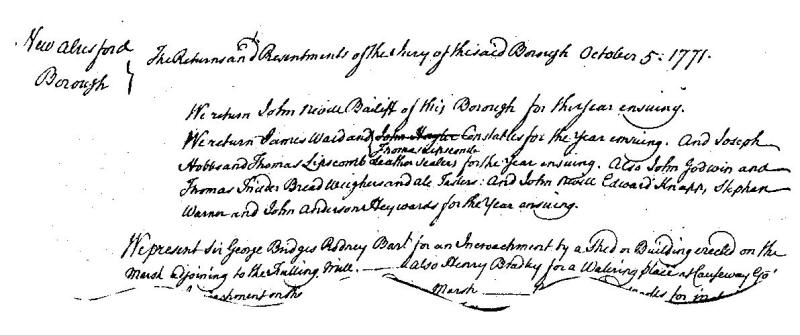 New Alresford
Borough
The Returns and Presentments of the Jury of the said Borough October 5: 1771.
We return John Nevill Bailiff of this Borough for the Year ensuing.
We return James Ward and Thomas Lipscomb Constables for the Year ensuing. And Joseph
Hobbs and Thomas Lipscomb Leather Sealers for the Year ensuing. Also John Godwin and
Thomas Bread Weighers and Ale Tasters: And John Nevill Edward Knapp, Stephen
Warner and John Anderson Heywards for the Year ensuing.
We present Sir George Bridges Rodney Bart for an Incroachment by a Shed or Building erected on the
Marsh adjoining to the Fulling Mill. also Henry Bradley for a Watering place at Causeway
Marsh